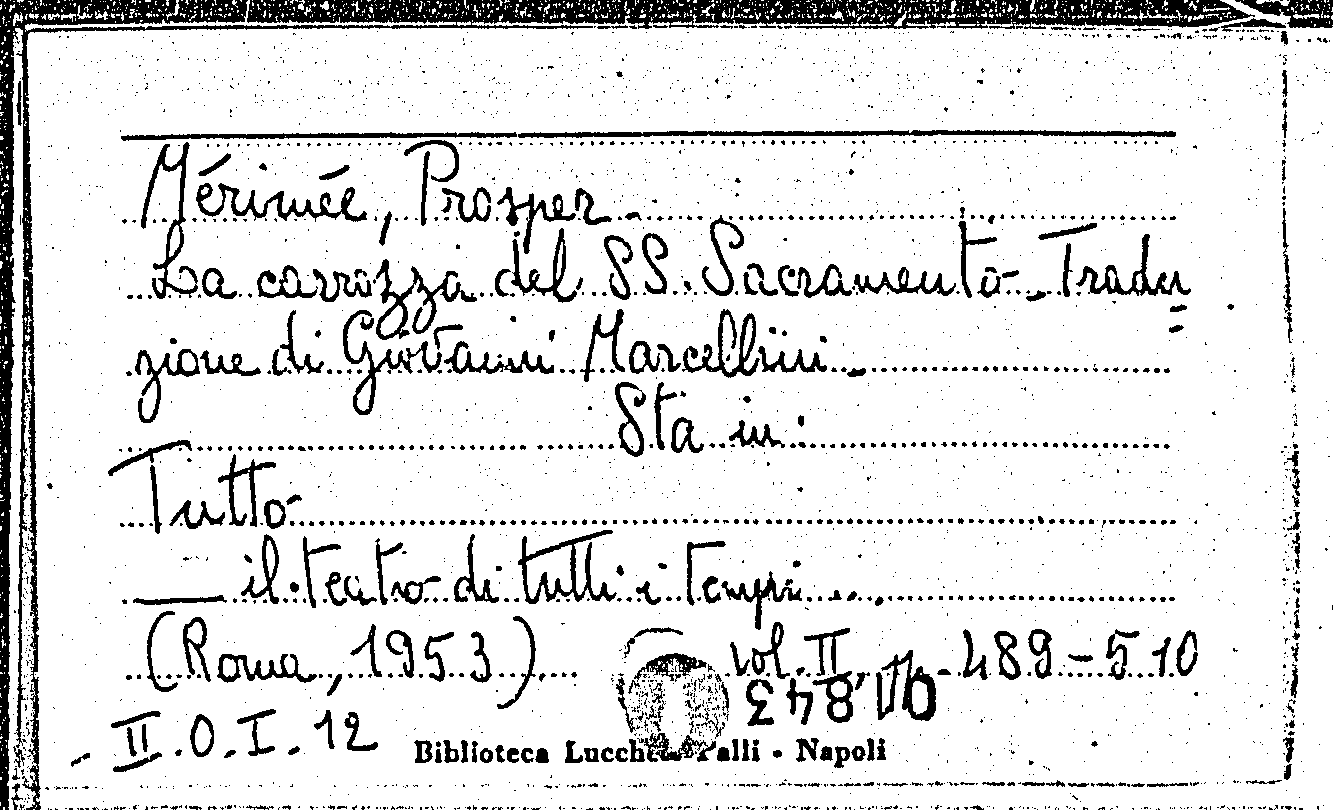 Mérimée, Prosper -
La carrozza del SS. Sacramento - Tradu=
zione di Giovanni Marcellini -
Sta in:
Tutto
— il teatro di tutti i tempi...
(Roma, 1953). vol. II, 489-510
- II.O.I.12
Biblioteca Lucchesi Palli - Napoli